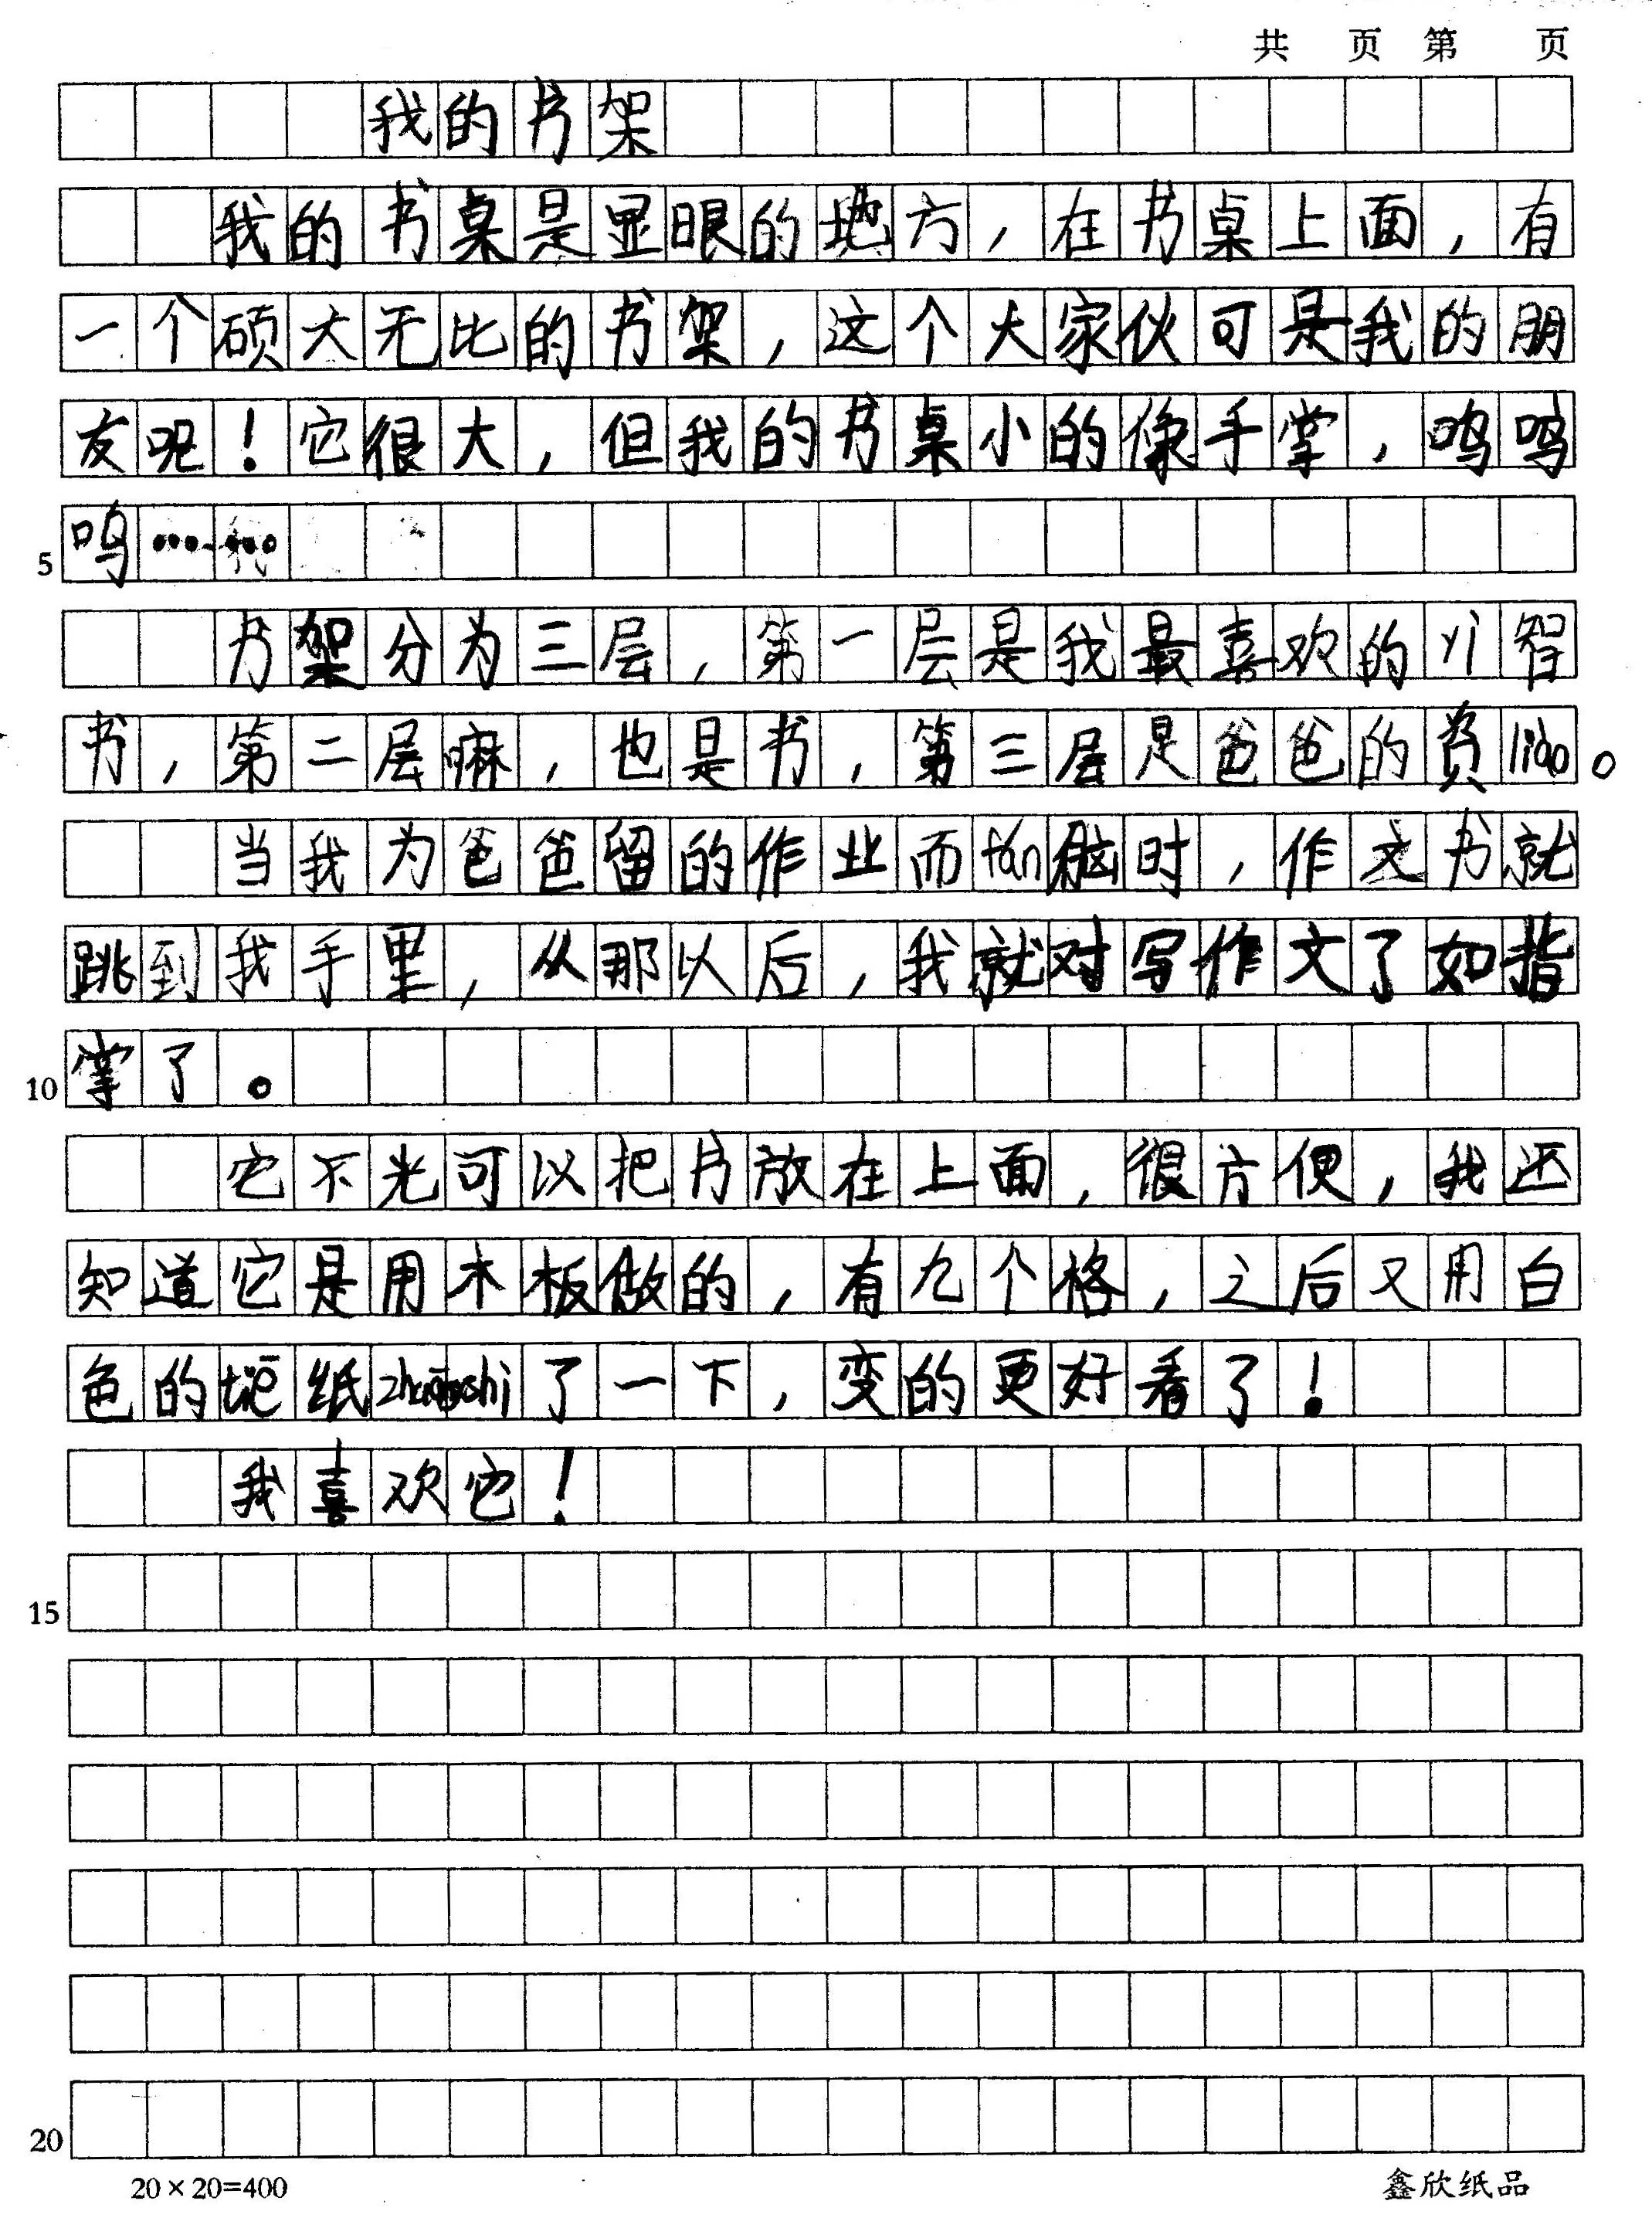 共 页 第 页
我的书架
我的书桌是显眼的地方，在书桌上面，有
一个硕大无比的书架，这个大家伙可是我的朋
友呢！它很大，但我的书桌小的像手掌，呜呜
5 呜……
书架分为三层，第一层是我最喜欢的yì智
书，第二层嘛，也是书，第三层是爸爸的资liào。
当我为爸爸留的作业而fán恼时，作文书就
跳到我手里，从那以后，我就对写作文了如指
10 掌了。
它不光可以把书放在上面，很方便，我还
知道它是用木板做的，有九个格，之后又用白
色的tiē纸zhuāngshi了一下，变的更好看了！
我喜欢它！
15
20
20×20=400 鑫欣纸品